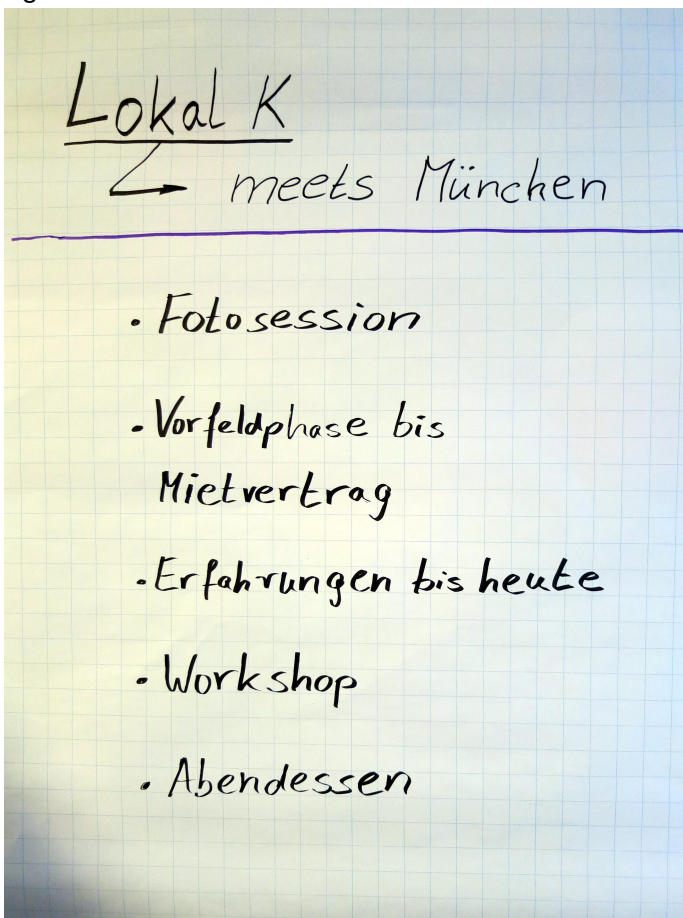 Lokal K
meets München
· Fotosession
· Vorfeldphase bis
Mietvertrag
· Erfahrungen bis heute
· Workshop
· Abendessen